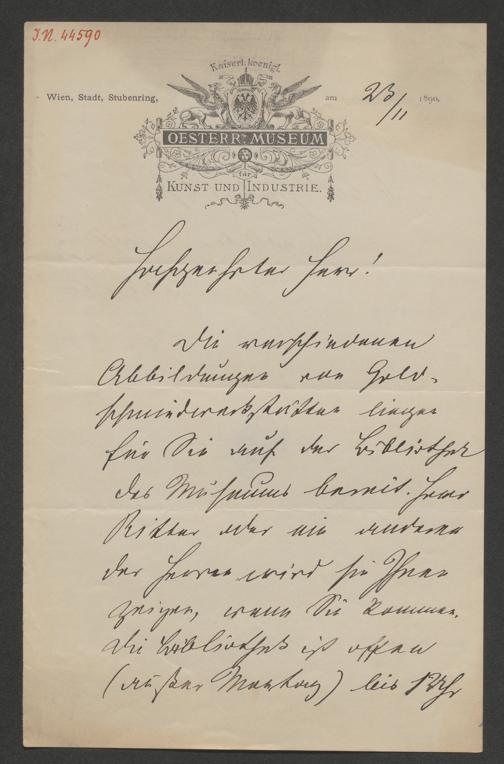 I.N. 44590
Kaiserl. koenigl.
Wien, Stadt, Stubenring, am 23/11 1890.
OESTERR. MUSEUM
für
KUNST UND INDUSTRIE.
Hochgeehrter Herr!
Die verschiedenen
Abbildungen von Gold-
schmiedwerkstätten liegen
für Sie auf der Bibliothek
des Museums bereit. Herr
Ritter oder ein anderer
der Herren wird sie Ihnen
zeigen, wenn Sie kommen.
Die Bibliothek ist offen
(außer Montag) bis Uhr